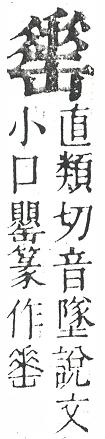 直類切音墜說文
小口罌篆作